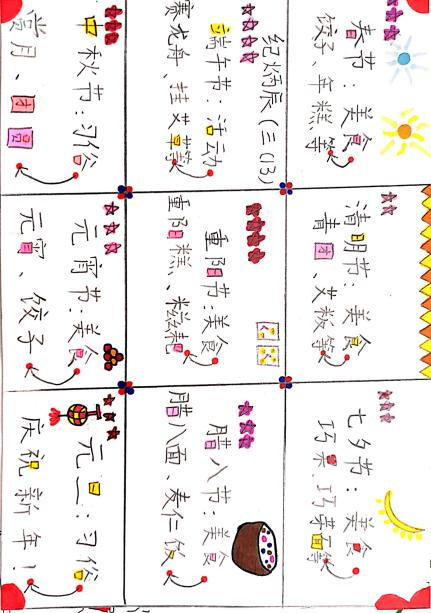 春节:美食
饺子、年糕等
清明节:美食
青团、艾粄等
七夕节:美食
巧果、巧菜面等
纪炳辰(三(13)
端午节:活动
赛龙舟、挂艾草等
重阳节:美食
重阳糕、糍粑
腊八节:美食
腊八面、麦仁饭
中秋节:习俗
赏月、团圆
元宵节:美食
元宵、饺子
元旦:习俗
庆祝新年!